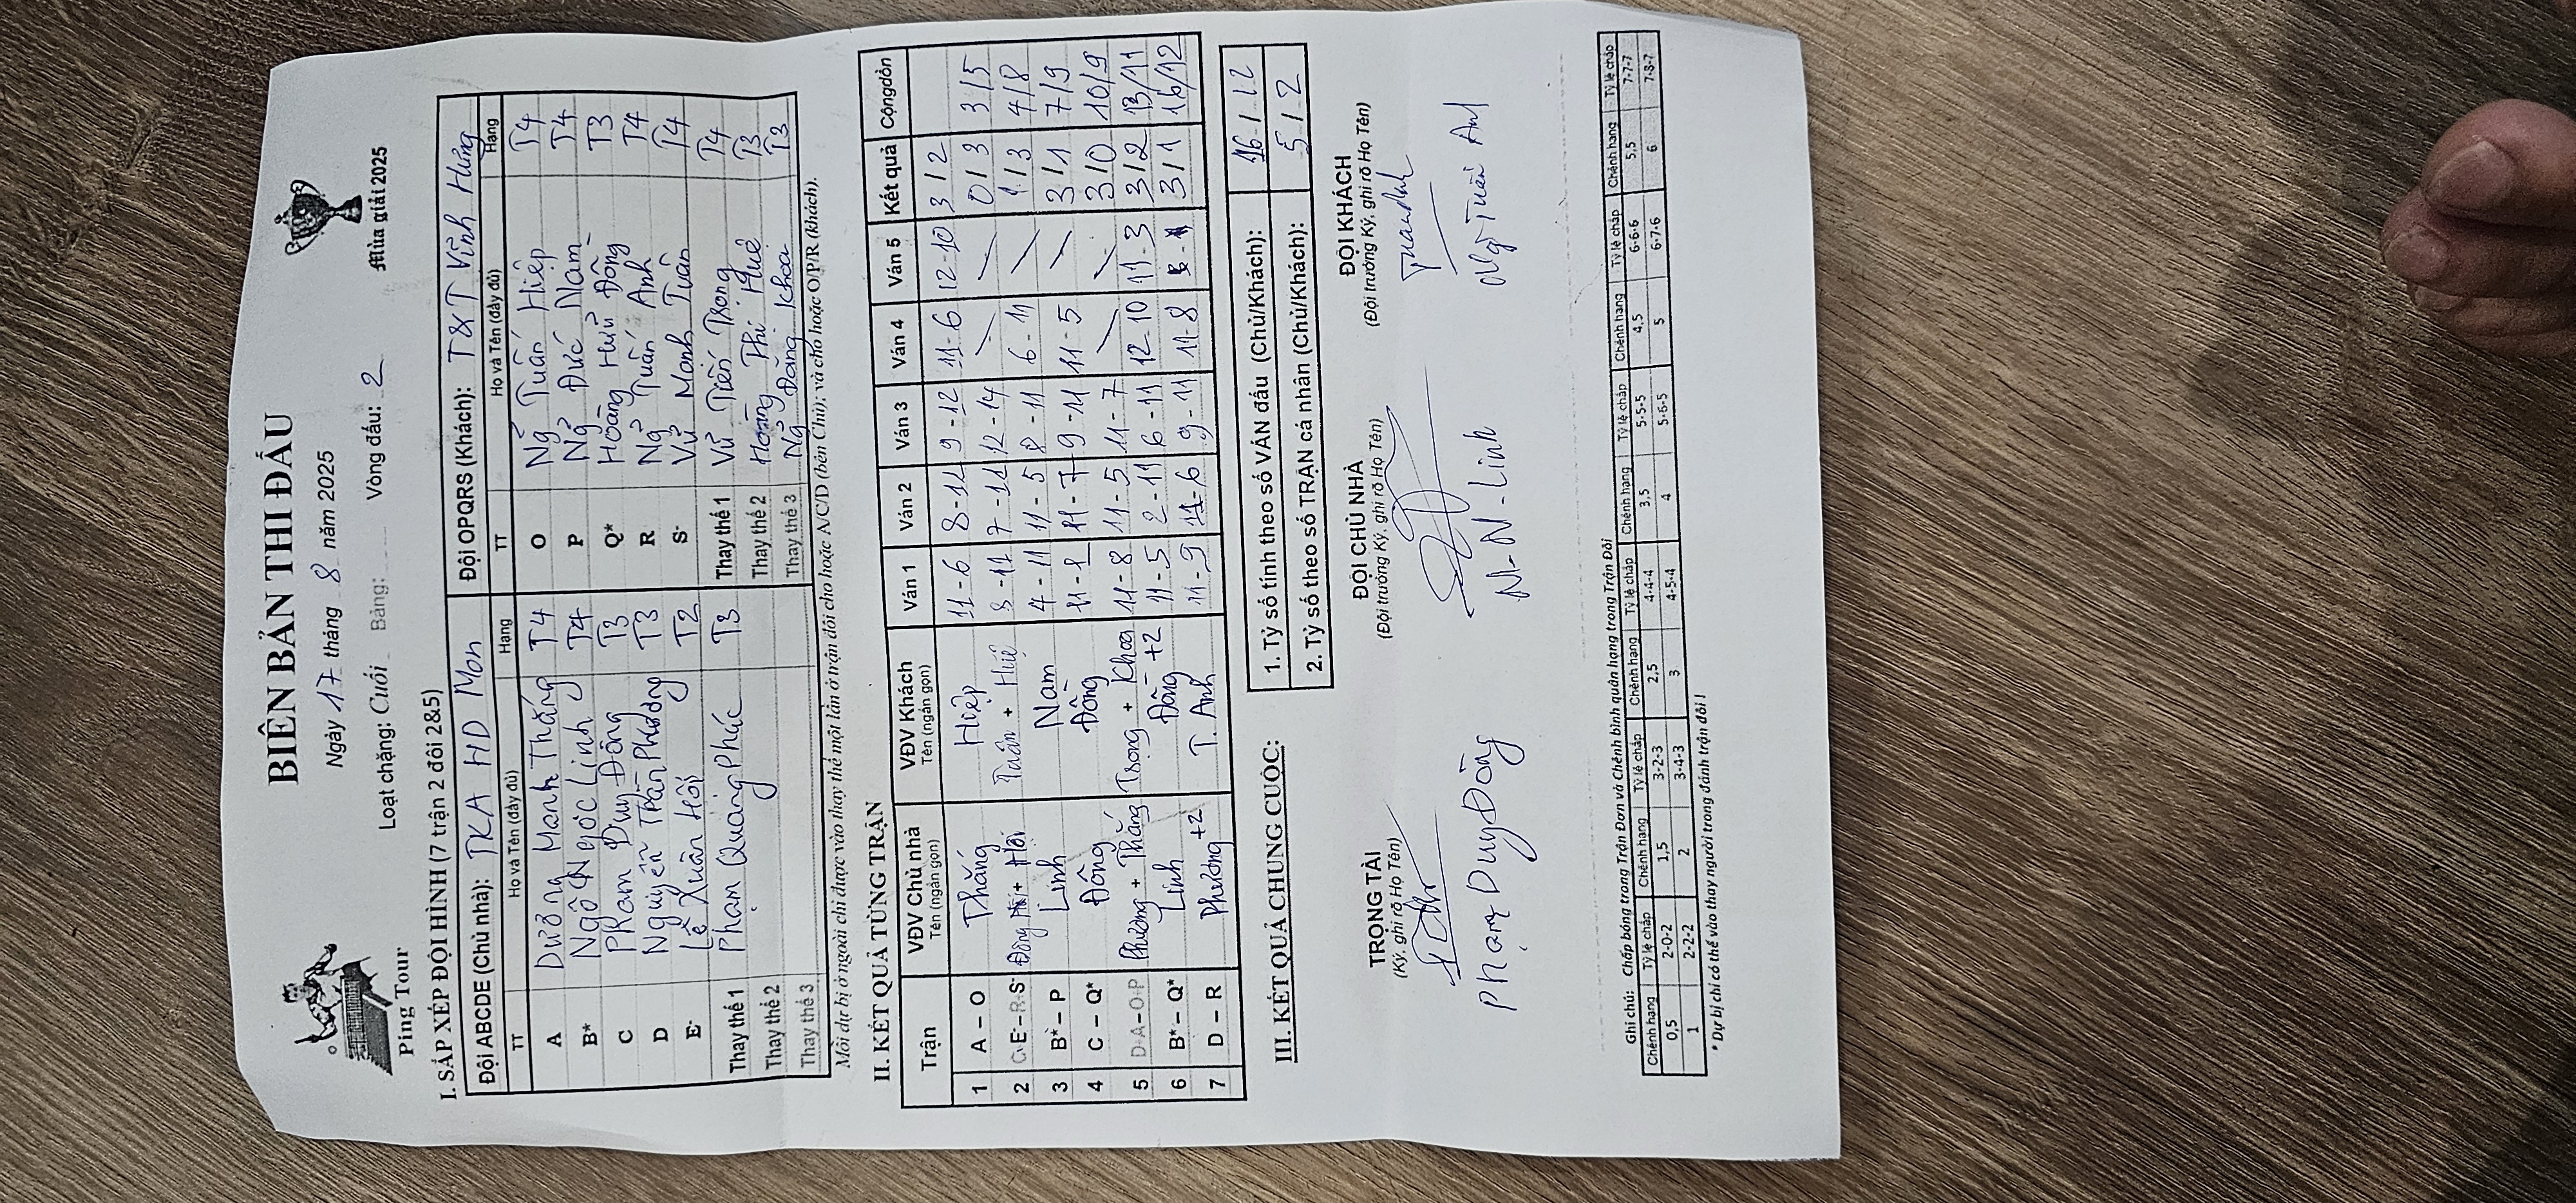 BIÊN BẢN THI ĐẤU
Ngày 17 tháng 8 năm 2025
Ping Tour
Loạt chặng: Cuối Bảng: Vòng đấu: 2
Mùa giải 2025
I. SẮP XẾP ĐỘI HÌNH (7 trận 2 đôi 2&5)
Đội ABCDE (Chủ nhà): TKA HD Mon Đội OPQRS (Khách): T&T Vĩnh Hưng
TT Họ và Tên (đầy đủ) Hạng TT Họ và Tên (đầy đủ) Hạng
A Dương Mạnh Thắng T4 O Ng̉ Tuấn Hiệp T4
B* Ngô Ngọc Linh T4 P Ng̉ Đức Nam T4
C Phạm Duy Đông T3 Q* Hoàng Hữu Đồng T3
D Nguyễn Trần Phương T3 R Ng̉ Tuấn Anh T4
E- Lê Xuân Hội T2 S- Vũ Mạnh Tuân T4
Thay thế 1 Phạm Quang Phúc T3 Thay thế 1 Vũ Tiến Trọng T4
Thay thế 2 Thay thế 2 Hoàng Thị Huê T3
Thay thế 3 Thay thế 3 Ng̉ Đăng Khoa T3
Mỗi dự bị ở ngoài chỉ được vào thay thế một lần ở trận đôi cho hoặc A/C/D (bên Chủ); và cho hoặc O/P/R (khách).
II. KẾT QUẢ TỪNG TRẬN
Trận VĐV Chủ nhà VĐV Khách Ván 1 Ván 2 Ván 3 Ván 4 Ván 5 Kết quả Cộng dồn
Tên (ngắn gọn) Tên (ngắn gọn)
1 A – O Thắng Hiệp 11-6 8-11 9-12 11-6 12-10 3/2
2 C E-–R-S- Đông + Hội Tuân + Huê 7-11 12-14 0/3 3/5
3 B* – P Linh Nam 4-11 11-5 8-11 6-11 1/3 4/8
4 C – Q* Đông Đồng 11-7 9-11 11-5 3/1 7/9
5 D-A–O-P Phương + Thắng Trọng + Khoa 11-8 11-5 11-7 3/0 10/9
6 B* – Q* Linh Đồng +2 11-5 2-11 6-11 12-10 11-3 3/2 13/11
7 D – R Phương +2 T. Anh 11-9 11-6 9-11 11-8 3/1 16/12
III. KẾT QUẢ CHUNG CUỘC:
1. Tỷ số tính theo số VÁN đấu (Chủ/Khách): 16/12
2. Tỷ số theo số TRẬN cá nhân (Chủ/Khách): 5/2
TRỌNG TÀI ĐỘI CHỦ NHÀ ĐỘI KHÁCH
(Ký, ghi rõ Họ Tên) (Đội trưởng Ký, ghi rõ Họ Tên) (Đội trưởng Ký, ghi rõ Họ Tên)
Phạm Duy Đông N-N-Linh Ng̉ Tuấn Anh
Ghi chú: Chấp bóng trong Trận Đơn và Chênh bình quân hạng trong Trận Đôi
Chênh hạng Tỷ lệ chấp Chênh hạng Tỷ lệ chấp Chênh hạng Tỷ lệ chấp Chênh hạng Tỷ lệ chấp Chênh hạng Tỷ lệ chấp Chênh hạng Tỷ lệ chấp
0,5 2-0-2 1,5 3-2-3 2,5 4-4-4 3,5 5-5-5 4,5 6-6-6 5,5 7-7-7
1 2-2-2 2 3-4-3 3 4-5-4 4 5-6-5 5 6-7-6 6 7-8-7
* Dự bị chỉ có thể vào thay người trong đánh trận đôi !